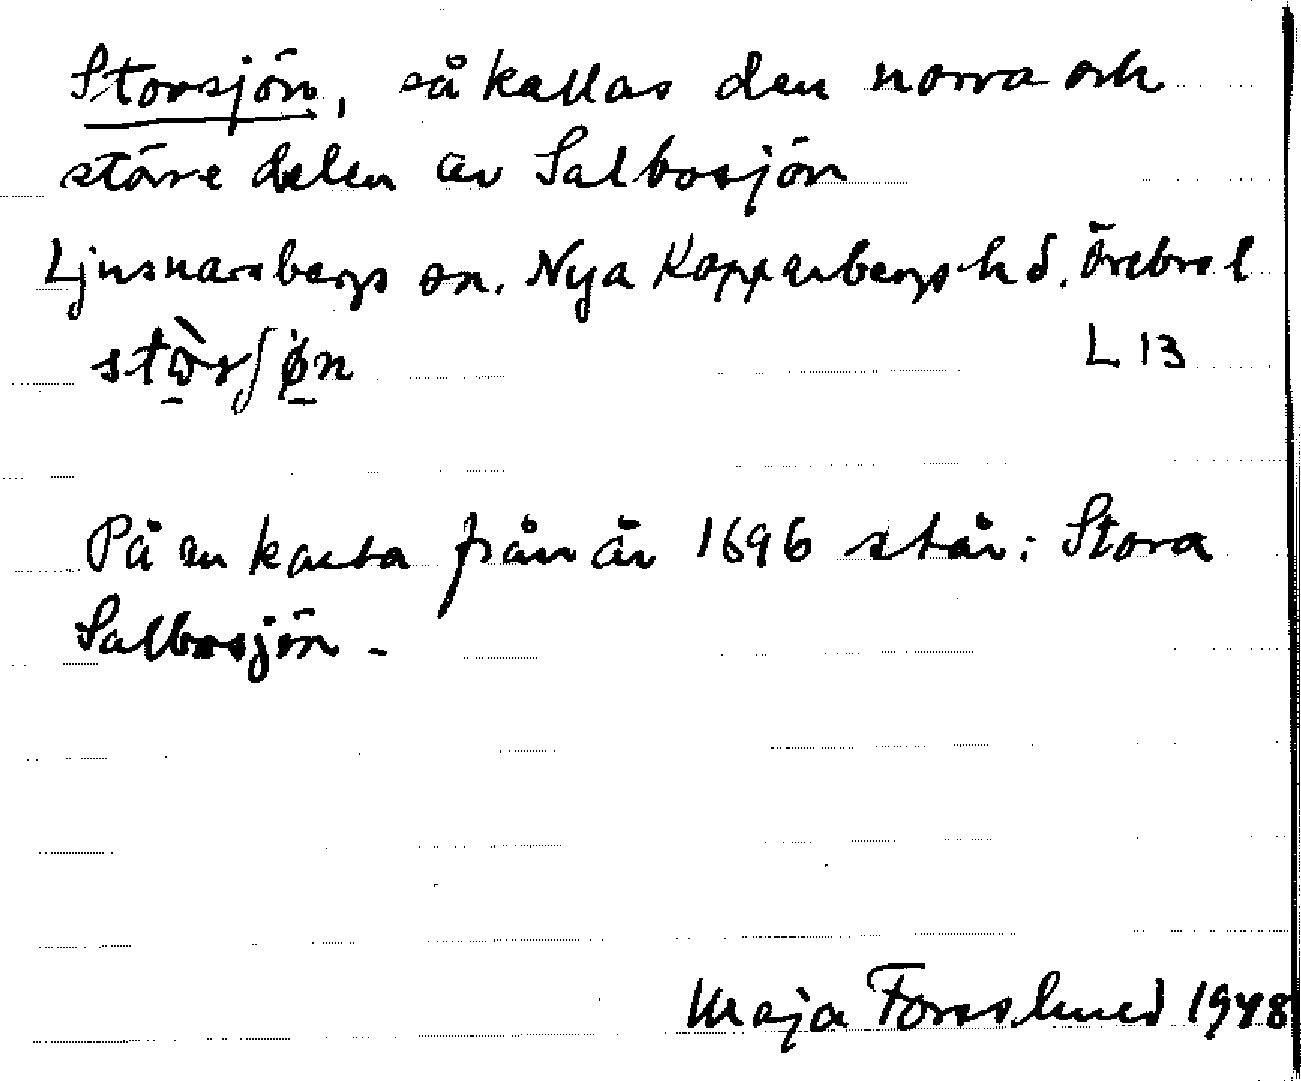 Storsjön, så kallas den norra och
större delen av Salbosjön
Ljusnarsbergs sn. Nya Kopparbergs hd. Örebro l
L 13
På en karta från år 1696 står: Stora
Salbosjön -
Maja Forsslund 1948